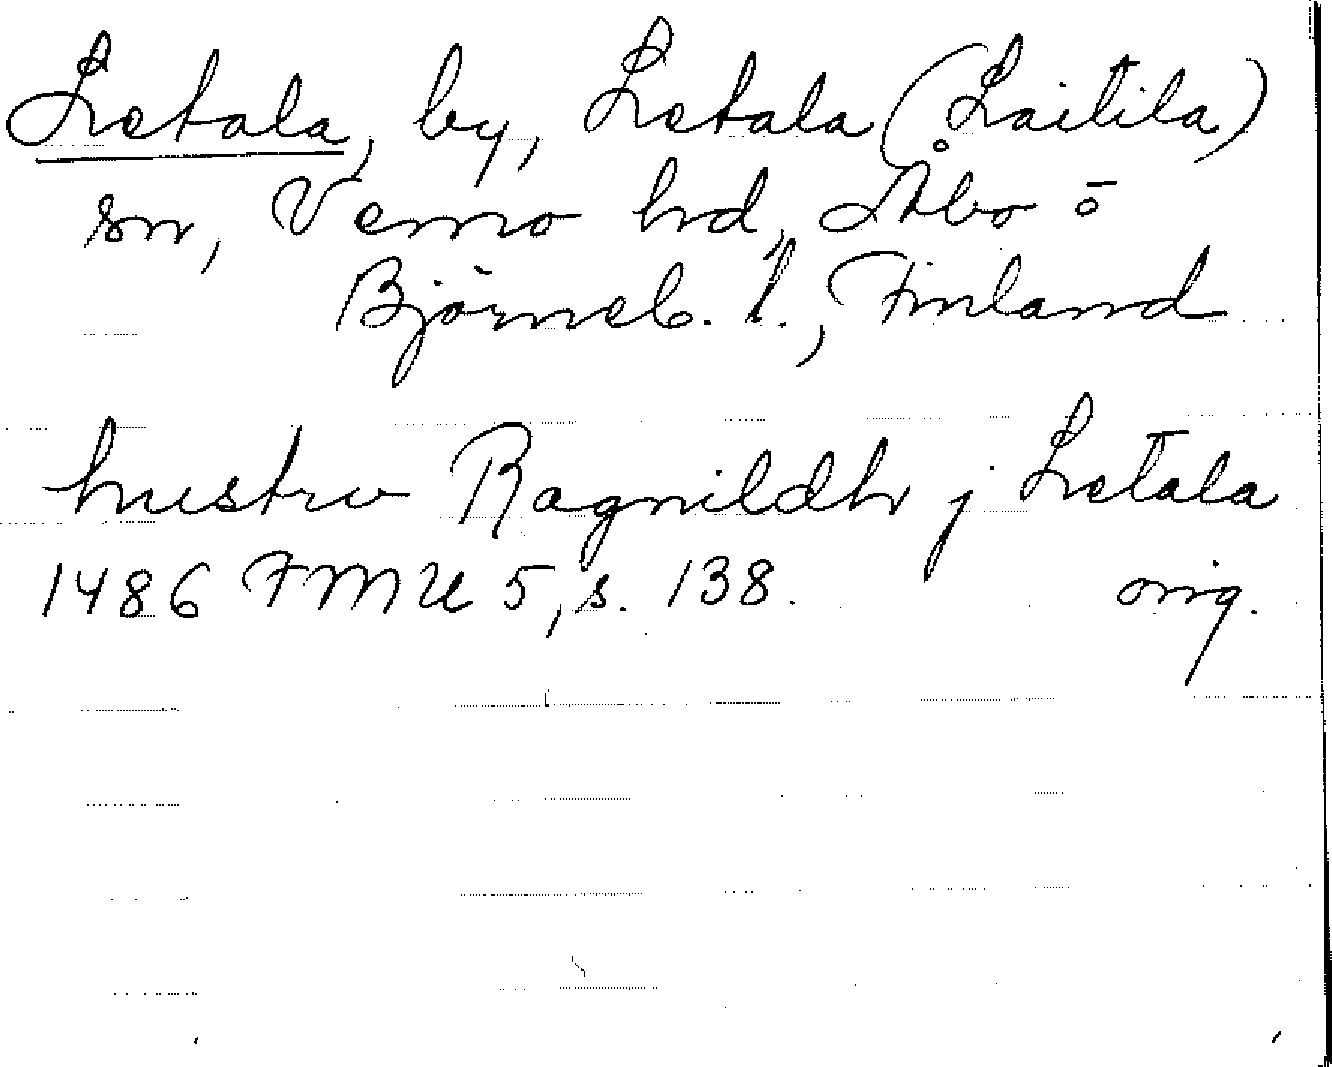 Letala, by, Letala (Laitila)
sn, Vemo hd, Åbo o
Björneb. l., Finland
hustrv Ragnildh j Letala
1486 FMU 5, s. 138. orig.